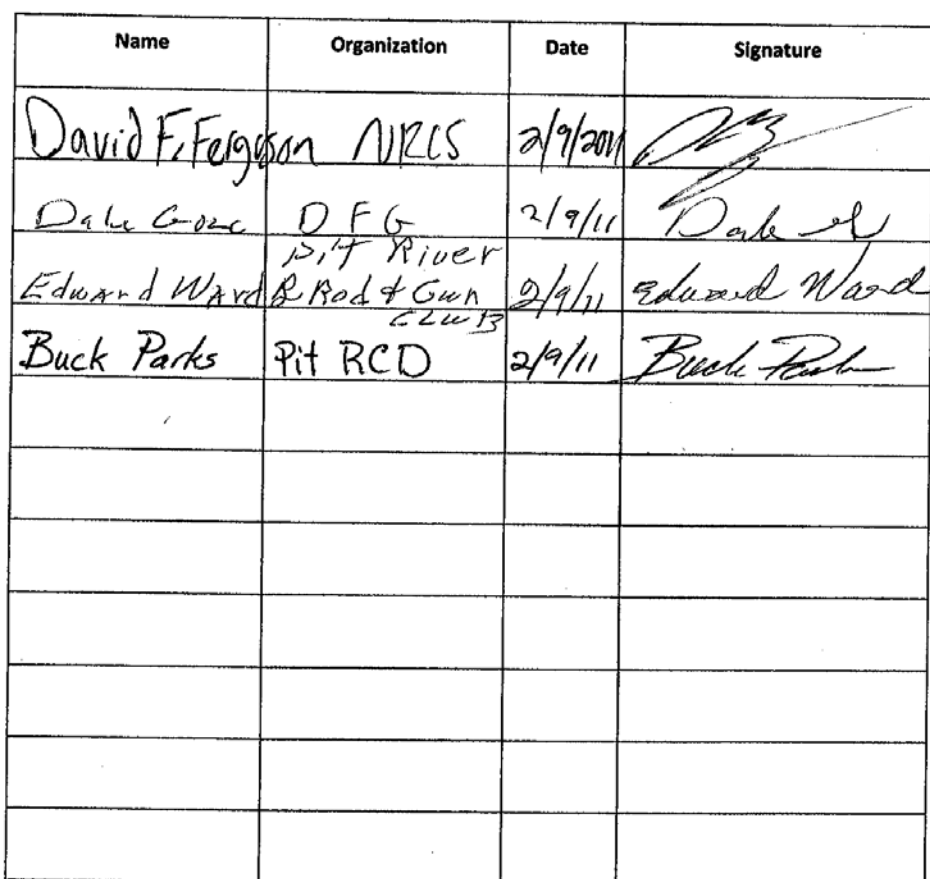 Name Organization Date Signature
David F. Ferguson NRCS 2/9/2011
Dale DFG 2/9/11 Dale
Pit River
Edward Ward R Rod & Gun 2/9/11 Edward Ward
CLUB
Buck Parks Pit RCD 2/9/11 Buck Parks